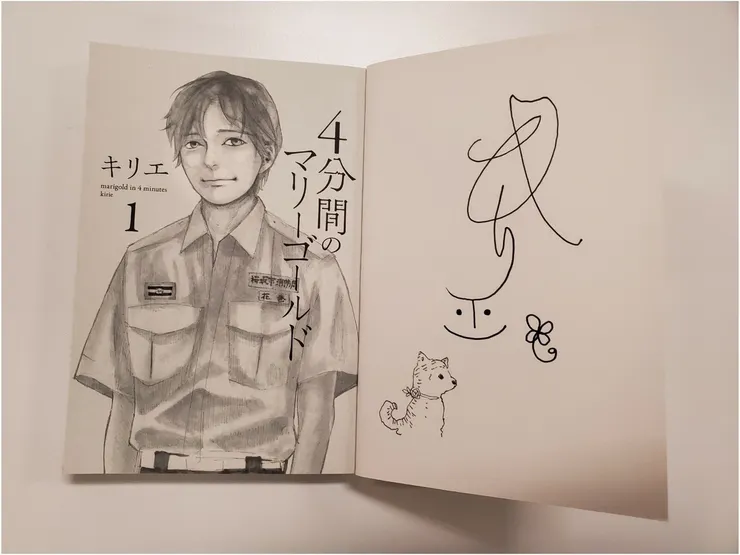 4分間の
マリーゴールド
キリエ
marigold in 4 minutes
kirie
1
花巻
キリエ